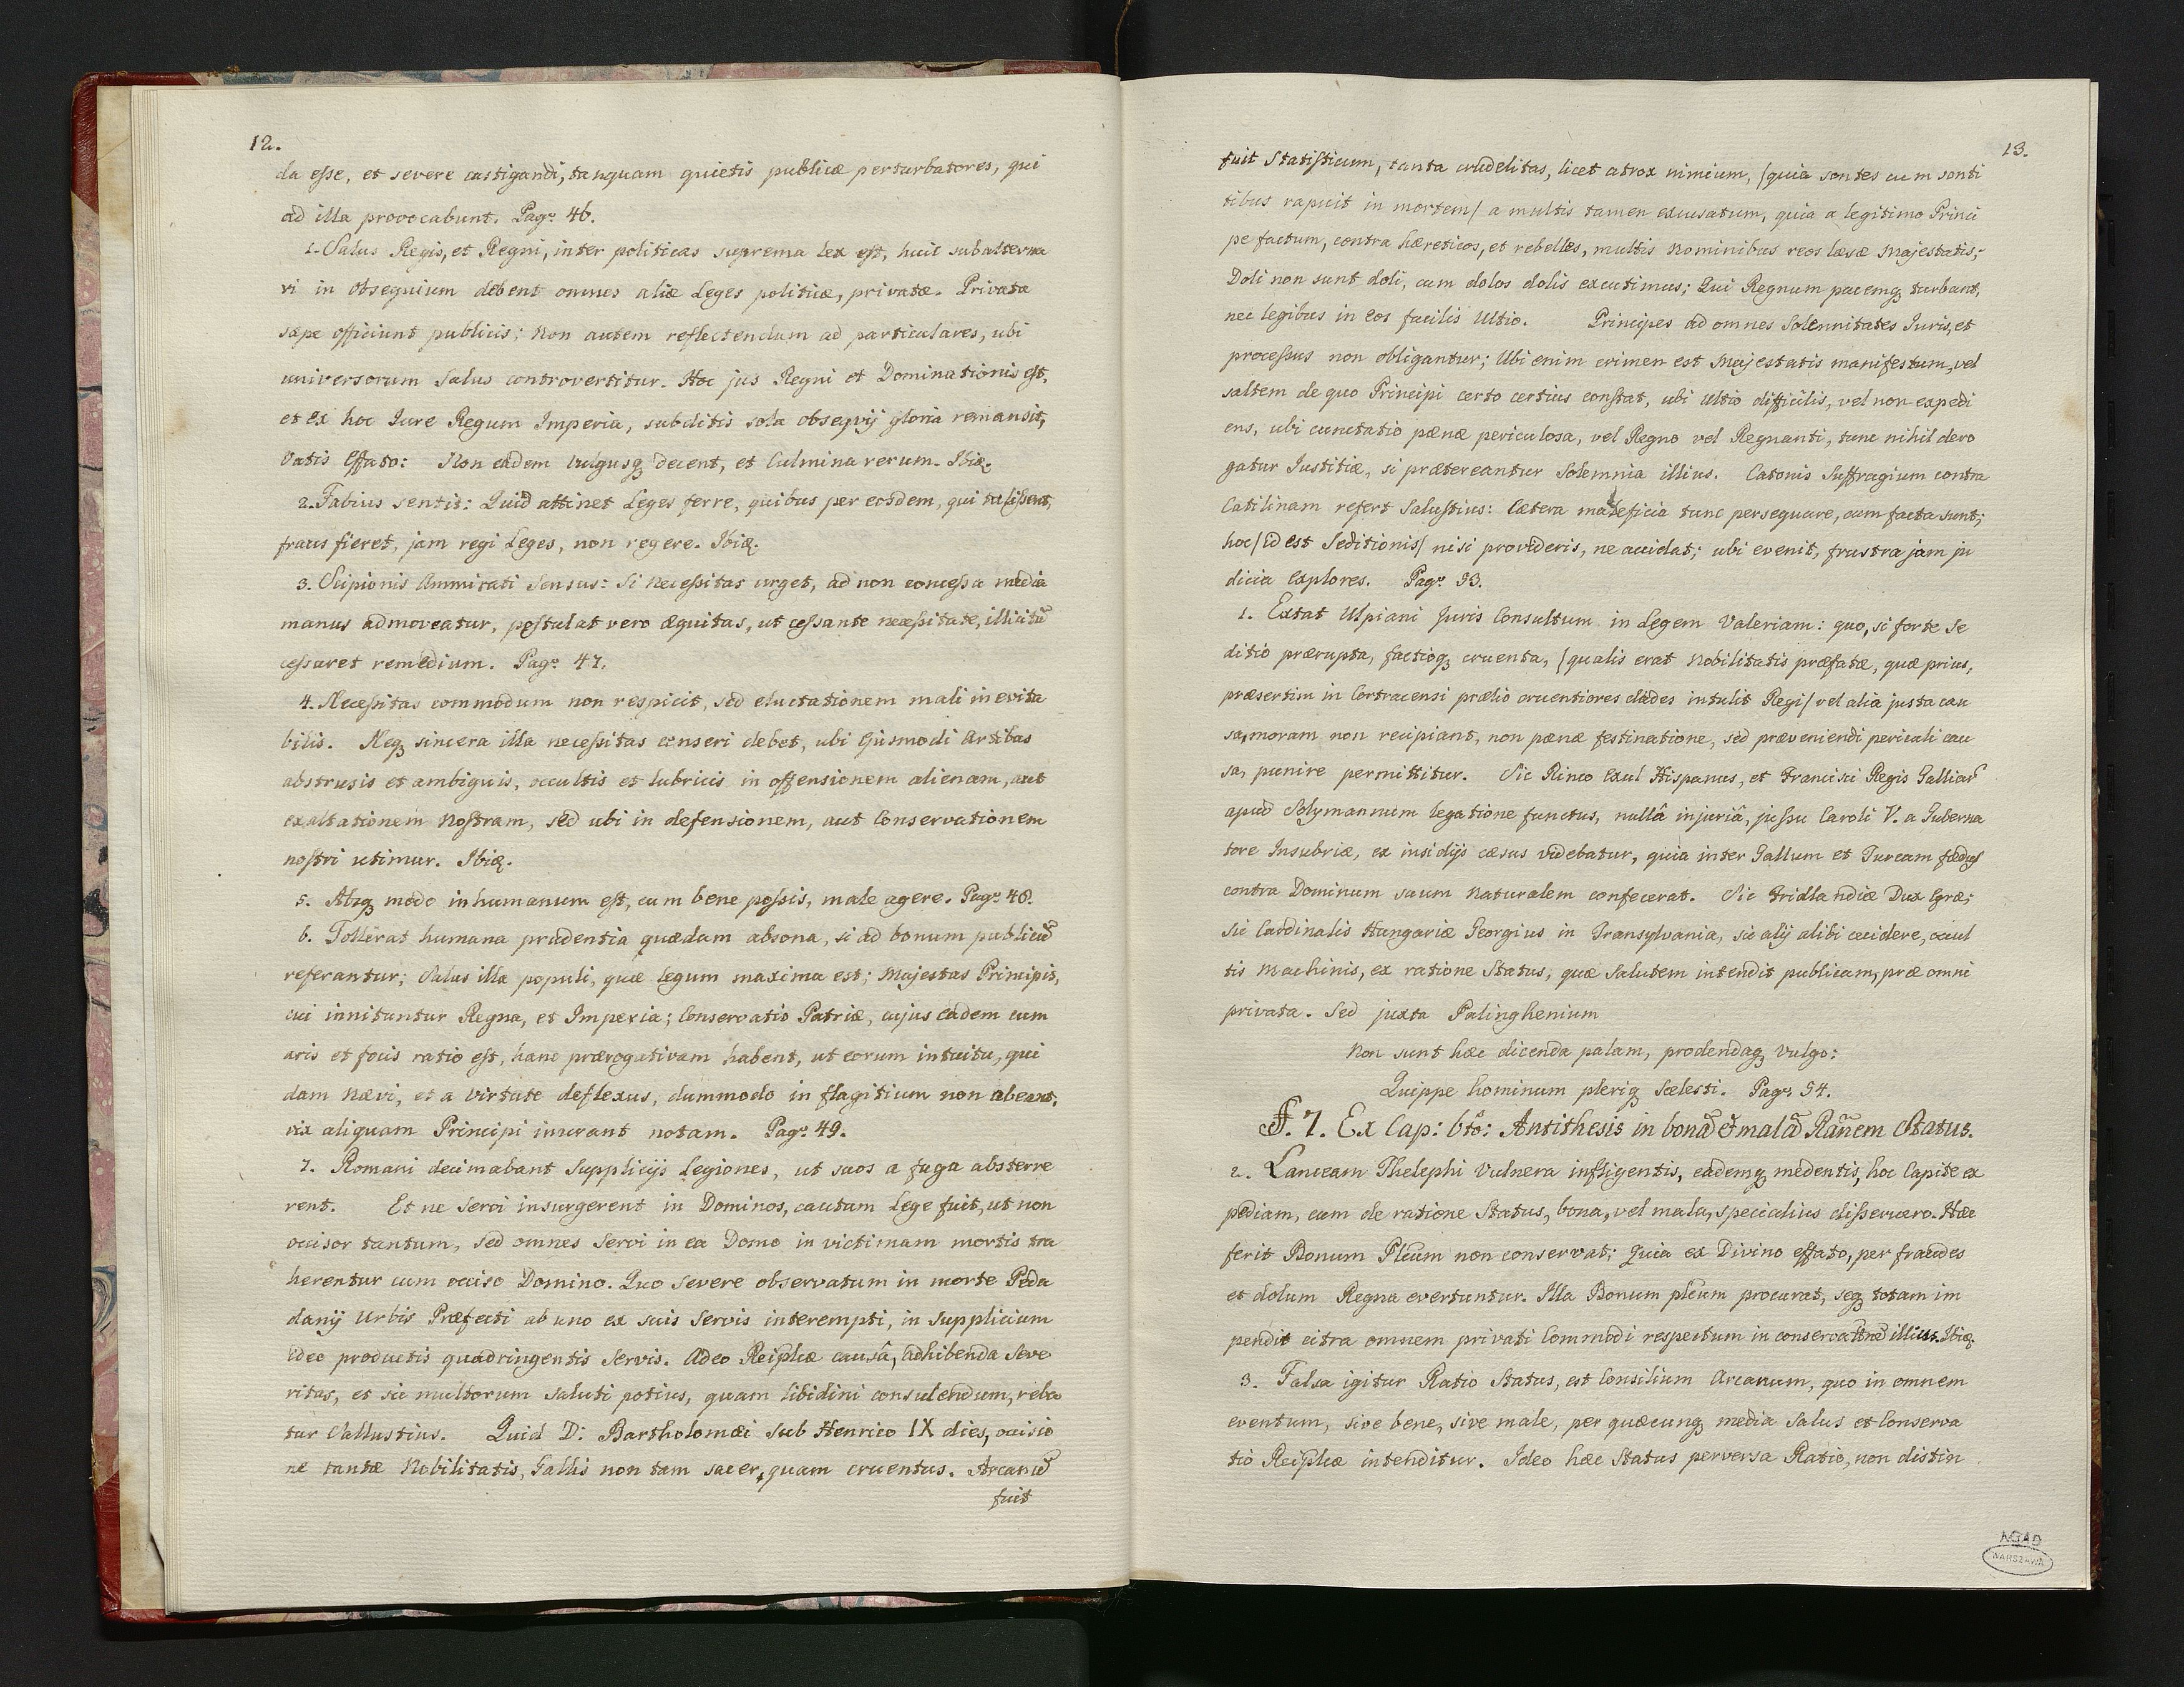 12.
da esse, et severe castigandi, tanquam quietis publicæ perturbatores, qui
ad illa provocabunt. Pag: 46.
1. Salus Regis, et Regni, inter politicas suprema lex est, huic subalterna
ri in obsequium debent omnes aliæ Leges politicæ, privatæ. Privata
sæpe officiunt publicis; Non autem reflectendum ad particulares, ubi
universorum Salus controvertitur. Hoc jus Regni et Dominationis est,
et ex hoc Iure Regum Imperia, subditis sola obsequij gloria remansit,
Vatis Effato: Non eadem vulgusq́ decent, et Culmina rerum. Ibiq.
2. Fabius sentit: Quid attinet Leges ferre, quibus per eosdem, qui tulissent,
fraus fieret, jam regi Leges, non regere. Ibiq.
3. Scipionis Ammirati Sensus: Si Necessitas urget, ad non concessa media
manus admoveatur, postulat vero æquitas, ut cessante necessitate, illicitũ
cessaret remedium. Pag: 47.
4. Necessitas commodum non respicit, sed eluctationem mali inevita
bilis. Neq́ sincera illa necessitas censeri debet, ubi Ejusmodi Artibus
abstrusis et ambiguis, occultis et lubricis in offensionem alienam, aut
exaltationem Nostram, sed ubi in defensionem, aut Conservationem
nostri utimur. Ibiq.
5. Absq́ modo inhumanum est, cum bene possis, male agere. Pag: 48.
6. Tollerat humana prudentia quædam absona, si ad bonum publicũ
referantur; Salus illa populi, quæ legum maxima est; Majestas Principis,
cui innituntur Regna, et Imperia; Conservatio Patriæ, cujus eadem cum
aris et focis ratio est, hanc prærogativam habent, ut eorum intuitu, qui
dam Nævi, et a Virtute deflexus, dummodo in flagitium non abeant,
vix aliquam Principi inurant notam. Pag: 49.
7. Romani decimabant Supplicijs Legiones, ut suos a fuga absterre
rent. Et ne Servi insurgerent in Dominos, cautum Lege fuit, ut non
occisor tantum, sed omnes Servi in ea Domo in victimam mortis tra
herentur cum occiso Domino. Quo severe observatum in morte Peda
danij Urbis Præfecti ab uno ex suis Servis interempti, in supplicium
ideo productis quadringentis Servis. Adeo Reiplicæ causâ, adhibenda Seve
ritas, et sic multorum saluti potius, quam libidini consulendum, reba
tur Sallustius. Quid D: Bartholomæi sub Henrico IX dies, occisio
ne tantæ Nobilitatis, Gallis non tam sacer, quam cruentus. Arcanũ
fuit
13.
fuit Statisticum, tanta crudelitas, licet atrox nimium, /quia sontes cum sonti
tibus rapuit in mortem/ a multis tamen excusatum, quia a legitimo Princi
pe factum, contra hæreticos, et rebelles, multis Nominibus reos læsæ Majestatis;
Doli non sunt doli, cum dolos dolis excutimus; Qui Regnum pacemq́ turbant,
nec legibus in eos facilis Ultio. Principes ad omnes Solennitates Iuris, et
processus non obligantur; Ubi enim crimen est Majestatis manifestum, vel
saltem de quo Principi certo certius constat, ubi Ultio difficilis, vel non expedi
ens, ubi cunctatio pænæ periculosa, vel Regno vel Regnanti, tunc nihil dero
gatur Iustitiæ, si prætereantur Solemnia illius. Catonis Suffragium contra
Catilinam refert Salustius: Cætera maleficia tunc persequare, cum facta sunt;
hoc /id est Seditionis/ nisi provideris, ne accidat; ubi evenit, frustra jam ju
dicia Explores. Pag: 53.
1. Extat Ulpiani Juris Consultum in Legem Valeriam: quo, si forte Se
ditio prærupta, factioq́ cruenta, /qualis erat Nobilitatis præfatæ, quæ prius,
præsertim in Cortracensi prælio cruentiores clades intulit Regi/ vel alia justa cau
sa, moram non recipiant, non pænæ festinatione, sed præveniendi periculi cau
sa, punire permittitur. Sic Rinco Exul Hispanus, et Francisci Regis Galliarũ
apud Solymannum legatione functus, nullâ injuriâ, jussu Caroli V. a Guberna
tore Insubriæ, ex insidijs cæsus videbatur, quia inter Gallum et Turcam fædus
contra Dominum suum Naturalem confecerat. Sic Fridlandiæ Dux Egræ;
sic Cardinalis Hungariæ Georgius in Transylvania, sic alij alibi cecidere, occul
tis Machinis, ex ratione Status, quæ Salutem intendit publicam, præ omni
privata. Sed juxta Palinghenium
Non sunt hæc dicenda palam, prodendaq́ vulgo:
Quippe hominum pleriq́ scelesti. Pag: 54.
§. 7. Ex Cap: 6to: Antithesis in bonã et malã Rãnem Status.
2. Lanceam Thelephi Vulnera infligentis, eademq́ medentis, hoc Capite ex
pediam, cum de ratione Status, bona, vel mala, specialius disseruero. Hæc
ferit Bonum Plicum non conservat; Quia ex Divino effato, per fraudes
et dolum Regna evertuntur. Illa Bonum plicum procurat, seq́ totam im
pendit citra omnem privati Commodi respectum in conservationẽ illius. Ibiq.
3. Falsa igitur Ratio Status, est Consilium Arcanum, quo in omnem
eventum, sive bene, sive male, per quæcunq́ media Salus et Conserva
tio Reiplicæ intenditur. Ideo hæc Status perversa Ratio, non distin
AGAD
WARSZAWA